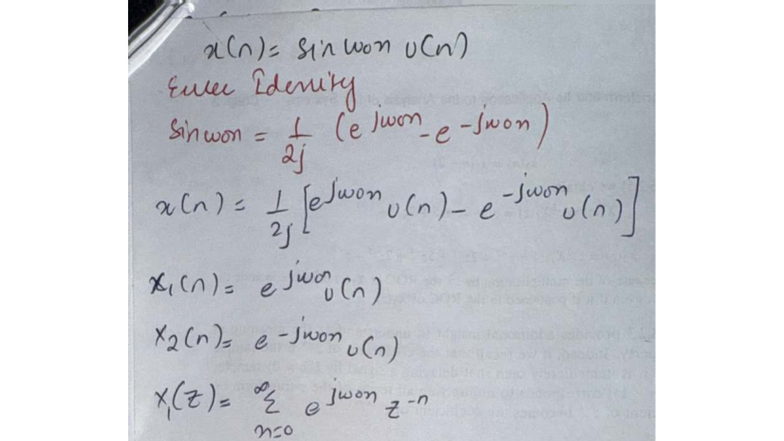 x(n) = sin won u(n)
Euler Idenity
Sin won = 1/2j (e^jwon - e^-jwon)
x(n) = 1/2j [e^jwon u(n) - e^-jwon u(n)]
x₁(n) = e^jwon u(n)
x₂(n) = e^-jwon u(n)
X₁(z) = ∞Σn=0 e^jwon z^-n